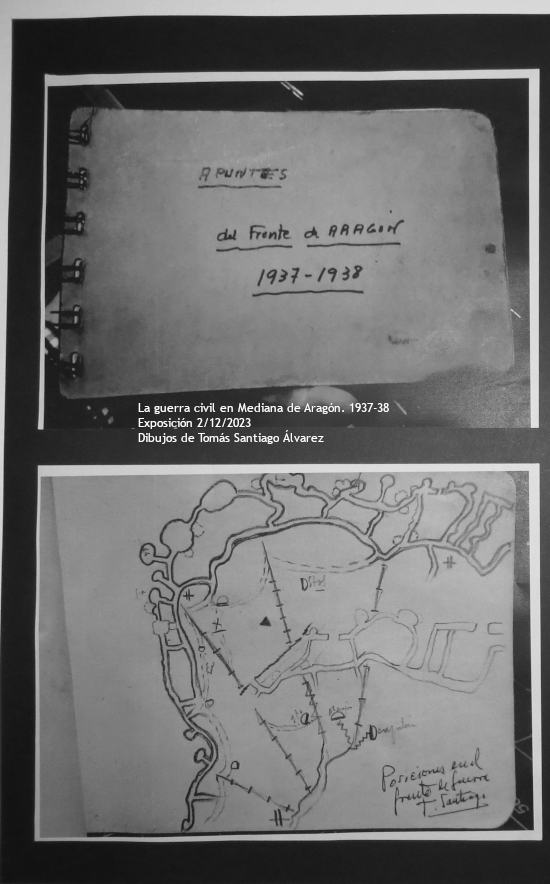 APUNTES
del Frente de ARAGÓN
1937-1938
La guerra civil en Mediana de Aragón. 1937-38
Exposición 2/12/2023
Dibujos de Tomás Santiago Álvarez
Posiciones en el
frente de guerra
T. Santiago